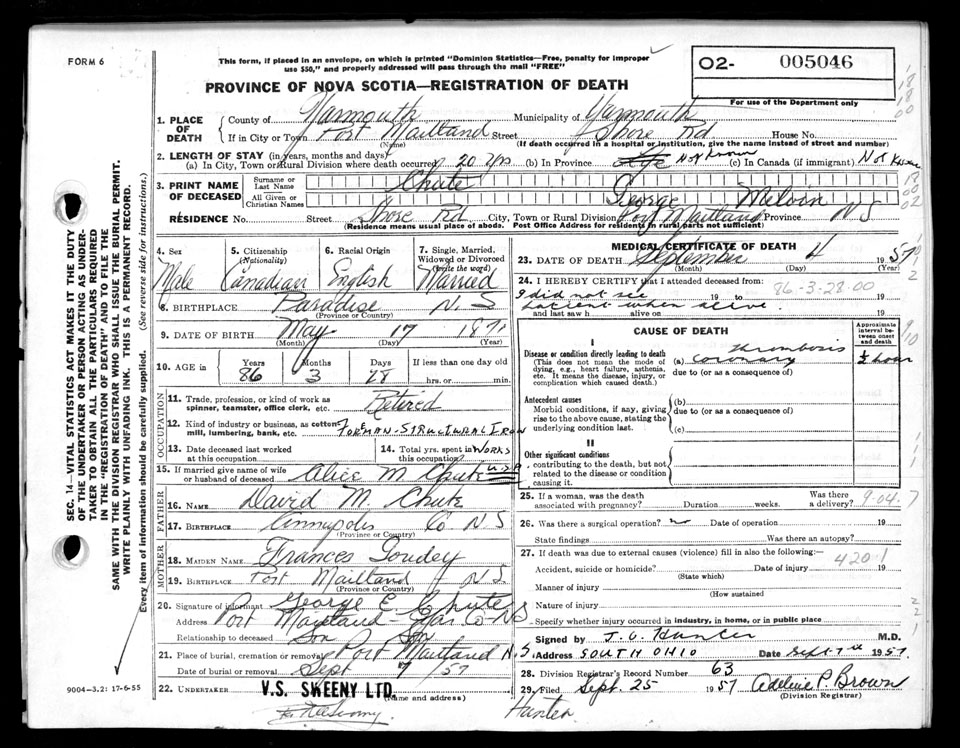 FORM 6
This form, if placed in an envelope, on which is printed "Dominion Statistics—Free, penalty for improper
use $50," and properly addressed will pass through the mail "FREE"
O2- 005046
For use of the Department only
PROVINCE OF NOVA SCOTIA—REGISTRATION OF DEATH
1. PLACE OF DEATH
County of Yarmouth Municipality of Yarmouth
If in City or Town Port Maitland Street Shore Rd House No.
(Name) (If death occurred in a hospital or institution, give the name instead of street and number)
2. LENGTH OF STAY (in years, months and days)
(a) In City, Town or Rural Division where death occurred 20 yrs (b) In Province Life Not Known (c) In Canada (if immigrant) Not Known
3. PRINT NAME OF DECEASED
Surname or Last Name Chute
All Given or Christian Names George Melvin
RESIDENCE No. Street Shore Rd City, Town or Rural Division Port Maitland Province N S
(Residence means usual place of abode. Post Office Address for residents in rural parts not sufficient)
4. Sex Male
5. Citizenship (Nationality) Canadian
6. Racial Origin English
7. Single, Married, Widowed or Divorced (Write the word) Married
8. BIRTHPLACE Paradise N. S
(Province or Country)
9. DATE OF BIRTH May 17 1871
(Month) (Day) (Year)
10. AGE in Years 86 Months 3 Days 28 If less than one day old hrs. or min.
OCCUPATION
11. Trade, profession, or kind of work as spinner, teamster, office clerk, etc. Retired
12. Kind of industry or business, as cotton mill, lumbering, bank, etc. Forman-Structural Iron
13. Date deceased last worked at this occupation
14. Total yrs. spent in this occupation Works U.S.A
15. If married give name of wife or husband of deceased Alice M Chute
FATHER
16. NAME David M. Chute
17. BIRTHPLACE Annapolis Co N S
(Province or Country)
MOTHER
18. MAIDEN NAME Frances Goudey
19. BIRTHPLACE Port Maitland N S.
(Province or Country)
20. Signature of informant George E Chute
Address Port Maitland - Yar. Co - N S
Relationship to deceased Son Son
21. Place of burial, cremation or removal Port Maitland N. S.
Date of burial or removal Sept 7/57
22. UNDERTAKER V.S. SWEENY LTD.
(Name and address)
MEDICAL CERTIFICATE OF DEATH
23. DATE OF DEATH September 4 1957
(Month) (Day) (Year)
24. I HEREBY CERTIFY that I attended deceased from:
86-3-28.00
I did not see 19 to 19
patient when alive.
and last saw h alive on 19
CAUSE OF DEATH
Approximate interval between onset and death
I
Disease or condition directly leading to death
(This does not mean the mode of dying, e.g., heart failure, asthenia, etc. It means the disease, injury, or complication which caused death.)
(a) Coronary thrombosis ½ hour
due to (or as a consequence of)
Antecedent causes
Morbid conditions, if any, giving rise to the above cause, stating the underlying condition last.
(b)
due to (or as a consequence of)
(c)
II
Other significant conditions
contributing to the death, but not related to the disease or condition causing it.
25. If a woman, was the death associated with pregnancy? Duration weeks. Was there a delivery? 9-04.7
26. Was there a surgical operation? Date of operation 19
State findings Was there an autopsy?
27. If death was due to external causes (violence) fill in also the following:—
Accident, suicide or homicide? Date of injury 19
420.1
(State which)
Manner of injury
(How sustained
Nature of injury
Specify whether injury occurred in industry, in home, or in public place
Signed by J. C. Hunter M.D.
Address South Ohio Date Sept 7th 1957
28. Division Registrar's Record Number 63
29. Filed Sept. 25 1957 Adeline P. Brown
(Division Registrar)
Hunter
SEC. 14—VITAL STATISTICS ACT MAKES IT THE DUTY
OF THE UNDERTAKER OR PERSON ACTING AS UNDER-
TAKER TO OBTAIN ALL THE PARTICULARS REQUIRED
IN THE "REGISTRATION OF DEATH" AND TO FILE THE
SAME WITH THE DIVISION REGISTRAR WHO SHALL ISSUE THE BURIAL PERMIT.
WRITE PLAINLY WITH UNFADING INK. THIS IS A PERMANENT RECORD.
Every item of information should be carefully supplied. (See reverse side for instructions.)
9004—3.2: 17-6-55